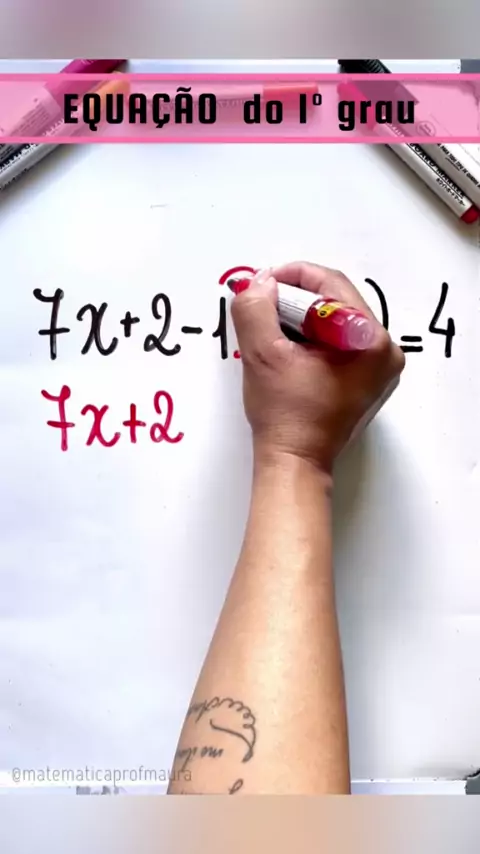 EQUAÇÃO do 1º grau
7x+2-1 )=4
7x+2
@matematicaprofmaura